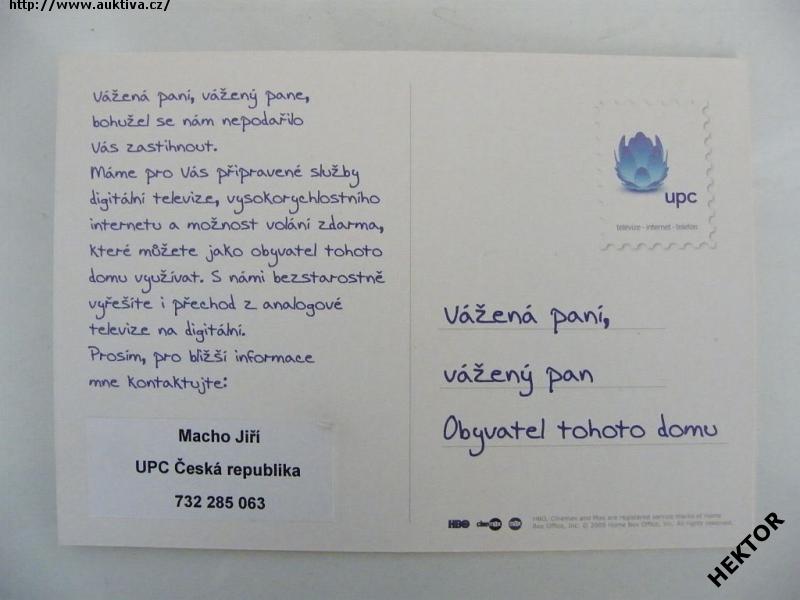 http://www.auktiva.cz/
Vážená paní, vážený pane,
bohužel se nám nepodařilo
Vás zastihnout.
Máme pro Vás připravené služby
digitální televize, vysokorychlostního
internetu a možnost volání zdarma,
které můžete jako obyvatel tohoto
domu využívat. S námi bezstarostně
vyřešíte i přechod z analogové
televize na digitální.
Prosím, pro bližší informace
mne kontaktujte:
Macho Jiří
UPC Česká republika
732 285 063
upc
televize - internet - telefon
Vážená paní,
vážený pan
Obyvatel tohoto domu
HBO cinemax max
HBO, Cinemax and Max are registered service marks of Home
Box Office, Inc. © 2009 Home Box Office, Inc. All rights reserved.
HEKTOR